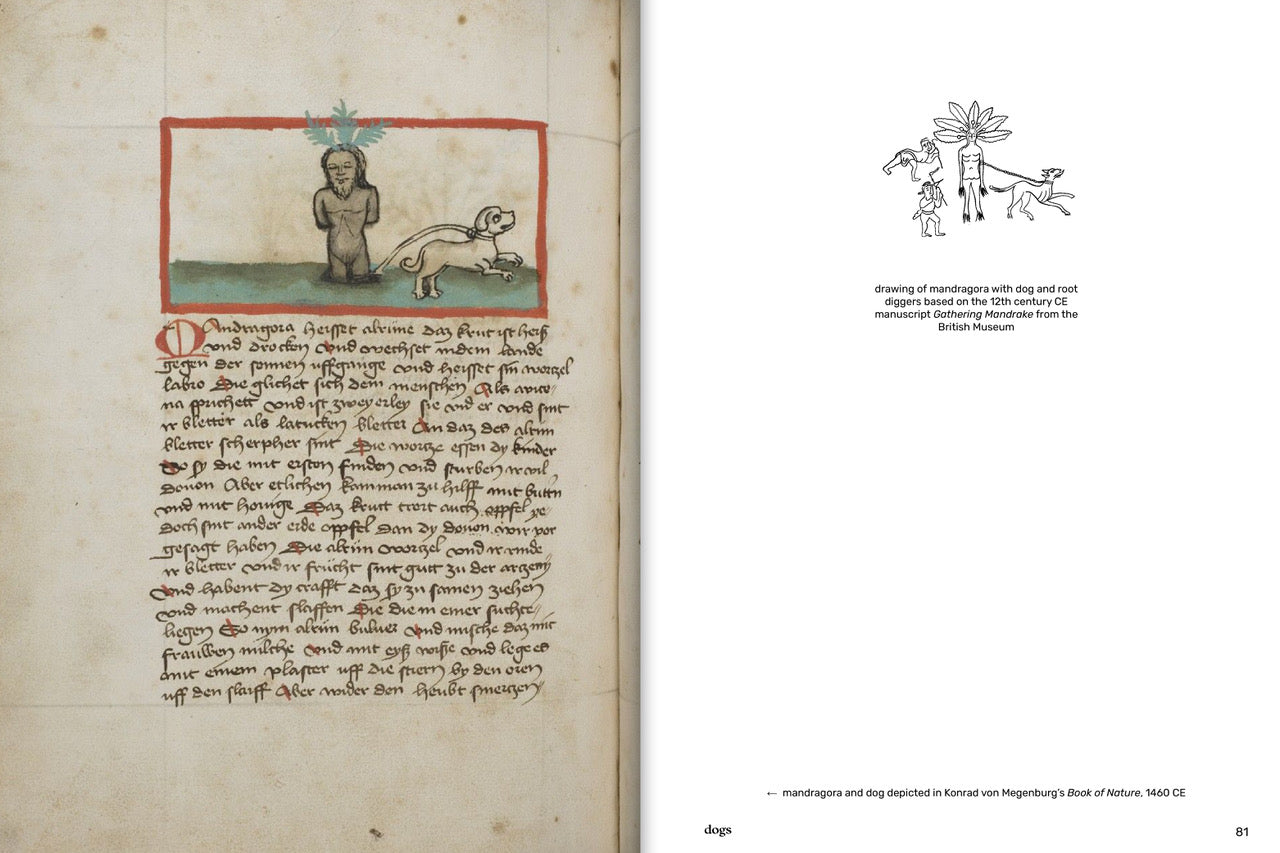 Mandragora heisset alrune daz krut ist heiß
und drocken Und wechset in dem lande
gegen der sonnen uffgange und heisset sin wortzel
labro Die glichet sich dem menschen Als avice-
na sprichett und ist zweyerley sie und er und sint
ir bletter als latucken bletter An daz des alrun
bletter scherpher sint Die wortze essen dy kinder
So sy die mit ersten finden und sturben ir vil
douon Aber etlichen kamman zu hilff mit buttn
und mit honige Daz krutt trert auch oppfel ye-
doch sint ander erde oppfel dan dy douon wir vor
gesagt haben Die alrun wortzel und ir rinde
ir bletter und ir frücht sint gutt zu der artzeny
Und habent dy crafft daz sy zu samen ziehen
und machent slaffen Die die in einer suchte
liegen So nym alrun buluer Und mische daz mit
frauwen milche Und mit eyß wiße und lege es
mit einem plaster uff die stiern by den oren
uff den slaiff Aber wider den heubt smertzen
drawing of mandragora with dog and root
diggers based on the 12th century CE
manuscript Gathering Mandrake from the
British Museum
← mandragora and dog depicted in Konrad von Megenburg's Book of Nature, 1460 CE
dogs
81